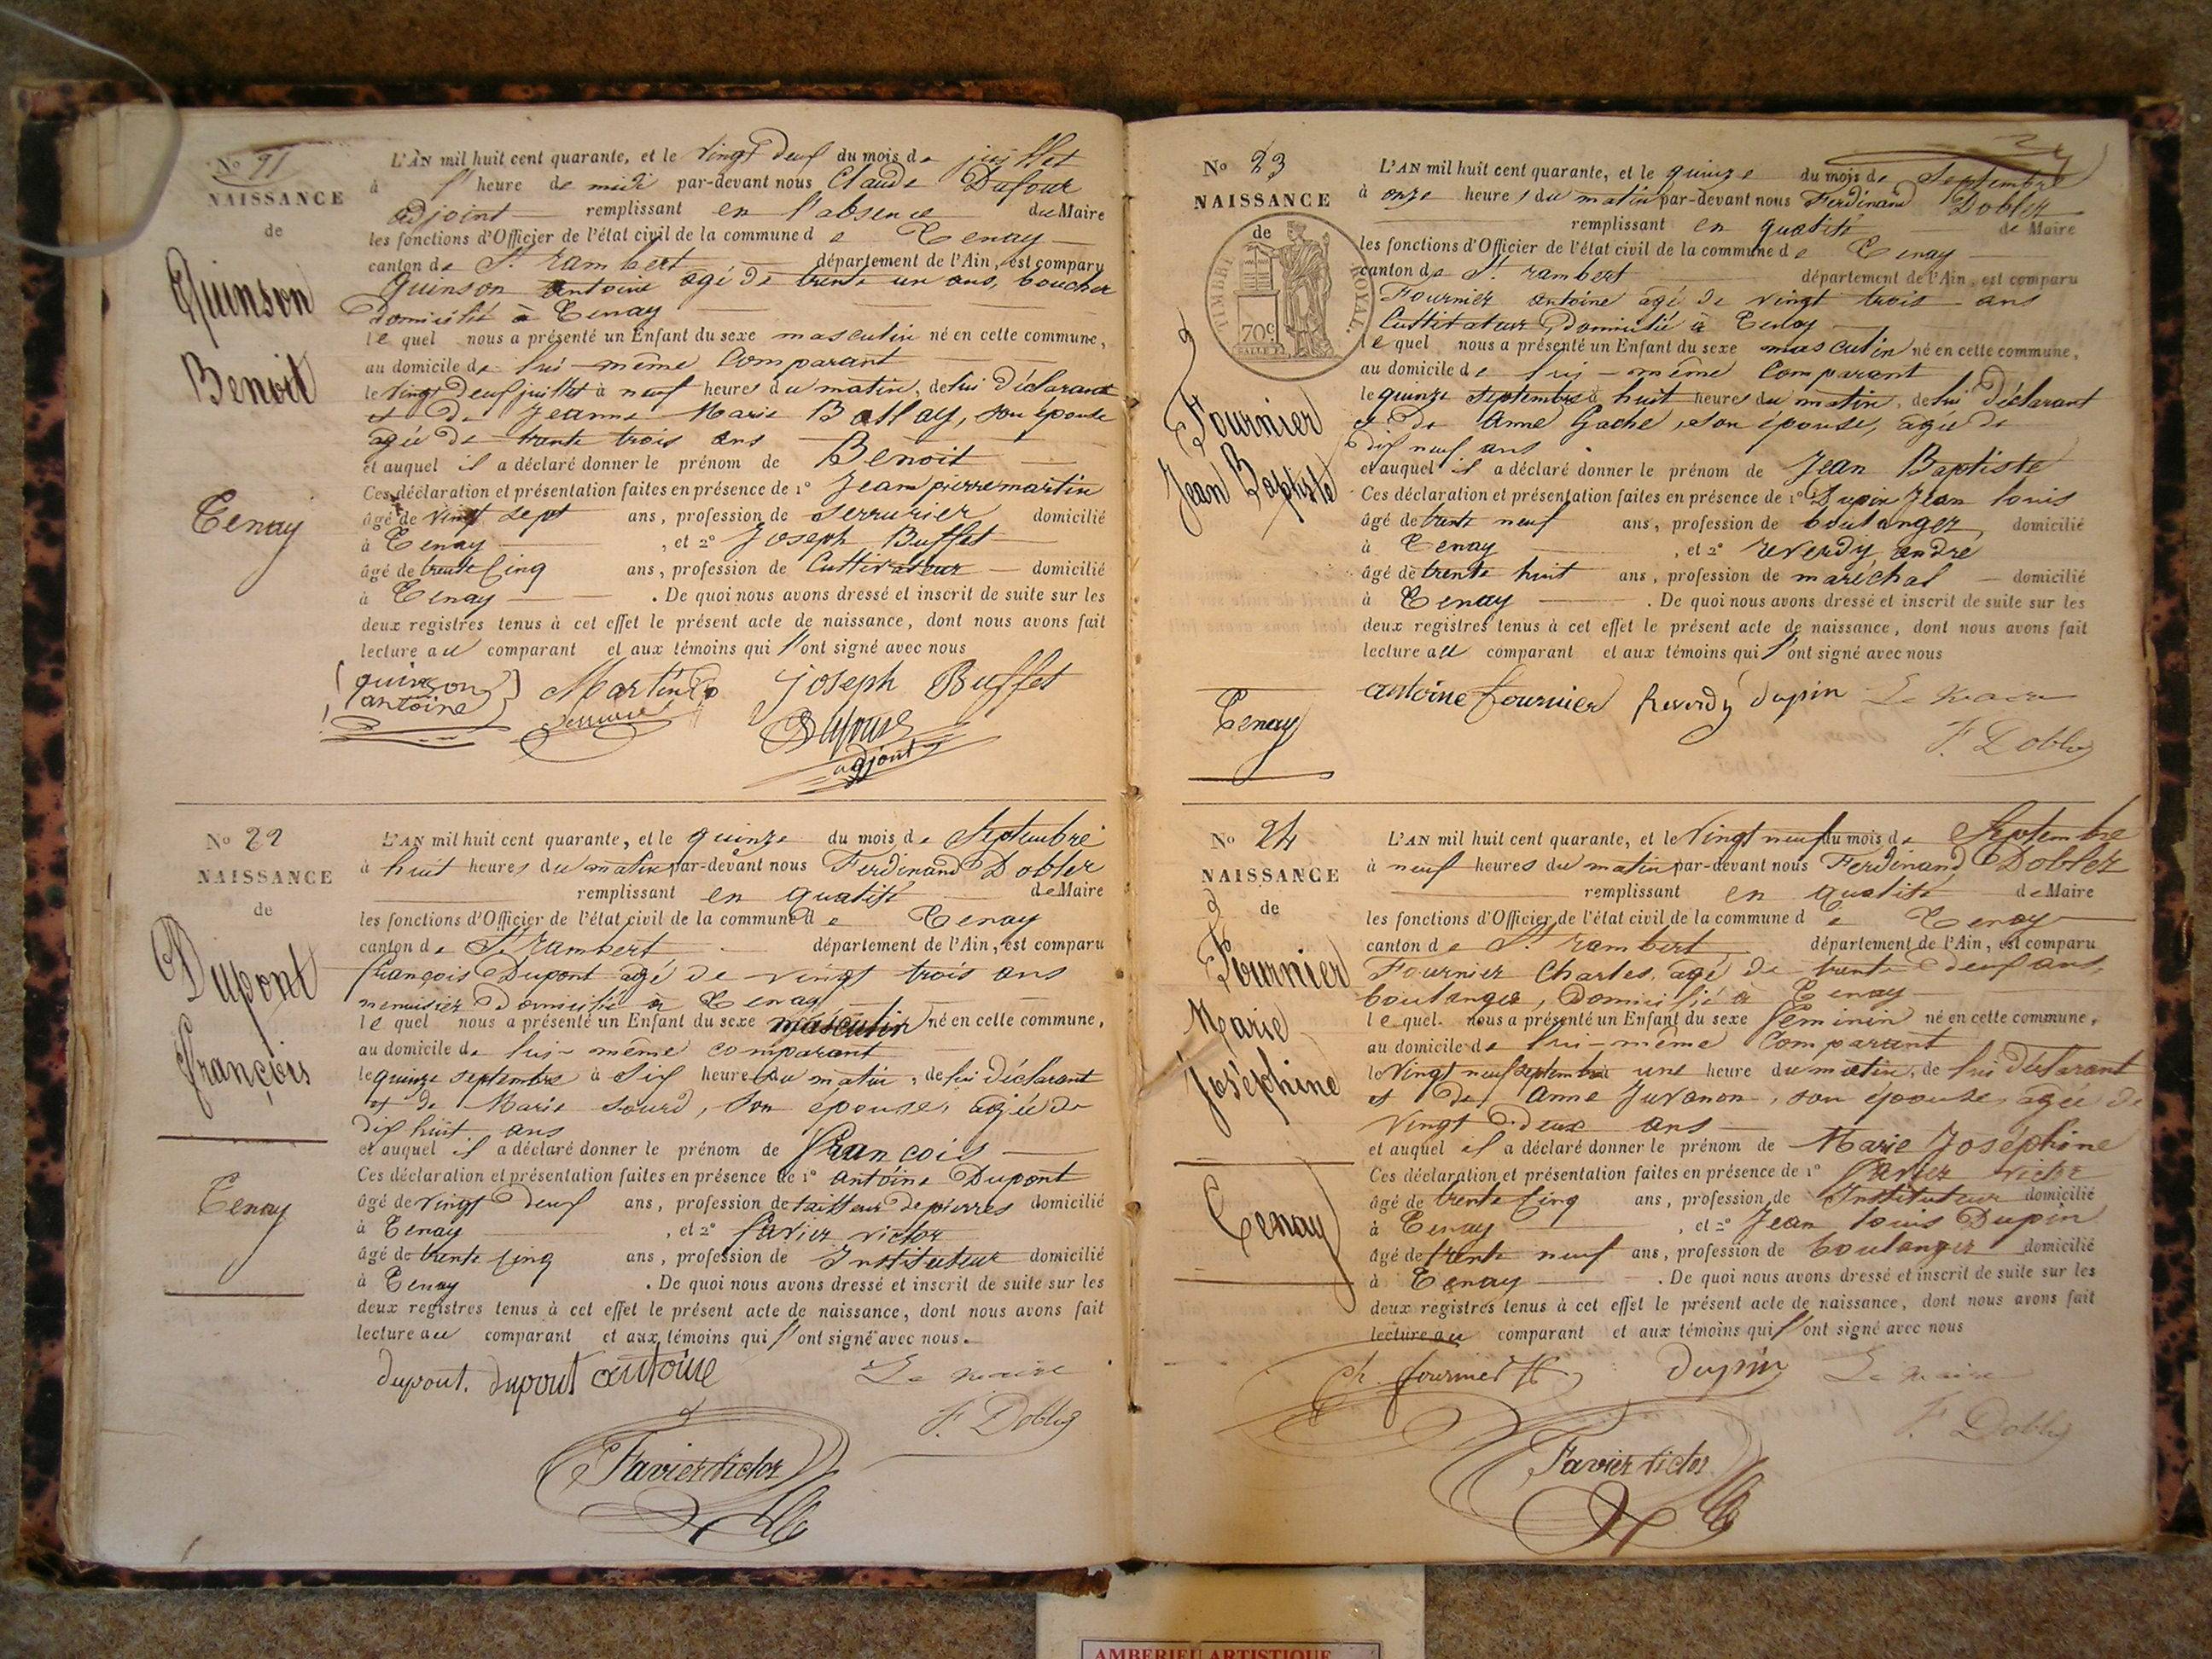 No 21
NAISSANCE
de
Quinson
Benoit
Tenay
L'AN mil huit cent quarante, et le vingt deux du mois de juillet
à l' heure de midi par-devant nous Claude Dufour
adjoint remplissant en l'absence du Maire
les fonctions d'Officier de l'état civil de la commune de Tenay
canton de St. rambert département de l'Ain, est comparu
Quinson antoine agé de trente un ans, boucher
domicilié à Tenay
lequel nous a présenté un Enfant du sexe masculin né en cette commune,
au domicile de lui-même Comparant
le vingt deux juillet à neuf heures du matin, de lui déclarant
et de Jeanne Marie Ballay, son épouse
agée de trente trois ans
et auquel il a déclaré donner le prénom de Benoit
Ces déclaration et présentation faites en présence de 1º Jean pierre martin
âgé de vingt sept ans, profession de serrurier domicilié
à Tenay, et 2º Joseph Buffet
âgé de trente cinq ans, profession de Cultivateur domicilié
à Tenay. De quoi nous avons dressé et inscrit de suite sur les
deux registres tenus à cet effet le présent acte de naissance, dont nous avons fait
lecture au comparant et aux témoins qui l'ont signé avec nous
quinson Martin Joseph Buffet
antoine
Dufour
adjoint
No 22
NAISSANCE
de
Dupont
françois
Tenay
L'AN mil huit cent quarante, et le quinze du mois de Septembre
à huit heures du matin par-devant nous Ferdinand Dobler
remplissant en qualité de Maire
les fonctions d'Officier de l'état civil de la commune de Tenay
canton de St. rambert département de l'Ain, est comparu
françois Dupont agé de vingt trois ans
menuisier domicilié à Tenay
lequel nous a présenté un Enfant du sexe masculin né en cette commune,
au domicile de lui-même comparant
le quinze septembre à six heures du matin, de lui déclarant
et de Marie sourd, son épouse, agée de
dix huit ans
et auquel il a déclaré donner le prénom de François
Ces déclaration et présentation faites en présence de 1º antoine Dupont
âgé de vingt deux ans, profession de tailleur de pierres domicilié
à Tenay, et 2º favier victor
âgé de trente cinq ans, profession de Instituteur domicilié
à Tenay. De quoi nous avons dressé et inscrit de suite sur les
deux registres tenus à cet effet le présent acte de naissance, dont nous avons fait
lecture au comparant et aux témoins qui l'ont signé avec nous.
dupont. dupont antoine Le maire
F. Dobler
Favier victor
No 23
NAISSANCE
de
TIMBRE ROYAL.
70c
Fournier
Jean Baptiste
Tenay
L'AN mil huit cent quarante, et le quinze du mois de Septembre
à onze heures du matin par-devant nous Ferdinand Dobler
remplissant en qualité de Maire
les fonctions d'Officier de l'état civil de la commune de Tenay
canton de St. rambert département de l'Ain, est comparu
Fournier antoine agé de vingt trois ans
Cultivateur, domicilié à Tenay
lequel nous a présenté un Enfant du sexe masculin né en cette commune,
au domicile de lui-même Comparant
le quinze septembre à huit heures du matin, de lui déclarant
et de anne Gache, son épouse, agée de
dix neuf ans
et auquel il a déclaré donner le prénom de Jean Baptiste
Ces déclaration et présentation faites en présence de 1º Dupin Jean louis
âgé de trente neuf ans, profession de boulanger domicilié
à Tenay, et 2º reverdy andré
âgé de trente huit ans, profession de maréchal domicilié
à Tenay. De quoi nous avons dressé et inscrit de suite sur les
deux registres tenus à cet effet le présent acte de naissance, dont nous avons fait
lecture au comparant et aux témoins qui l'ont signé avec nous
antoine fournier Reverdy dupin Le maire
F. Dobler
No 24
NAISSANCE
de
Fournier
Marie
Joséphine
Tenay
L'AN mil huit cent quarante, et le Vingt neuf du mois de Septembre
à neuf heures du matin par-devant nous Ferdinand Dobler
remplissant en qualité de Maire
les fonctions d'Officier de l'état civil de la commune de Tenay
canton de St. rambert département de l'Ain, est comparu
Fournier Charles, agé de trente deux ans,
boulanger, domicilié à Tenay
lequel nous a présenté un Enfant du sexe féminin né en cette commune,
au domicile de lui-même Comparant
le Vingt neuf septembre une heure du matin, de lui déclarant
et de anne Juvanon, son épouse, agée de
Vingt deux ans
et auquel il a déclaré donner le prénom de Marie Joséphine
Ces déclaration et présentation faites en présence de 1º favier victor
âgé de trente cinq ans, profession de Instituteur domicilié
à Tenay, et 2º Jean louis Dupin
âgé de trente neuf ans, profession de boulanger domicilié
à Tenay. De quoi nous avons dressé et inscrit de suite sur les
deux registres tenus à cet effet le présent acte de naissance, dont nous avons fait
lecture au comparant et aux témoins qui l'ont signé avec nous
Ch. fournier dupin Le maire
F. Dobler
Favier victor
AMBERIEU ARTISTIQUE